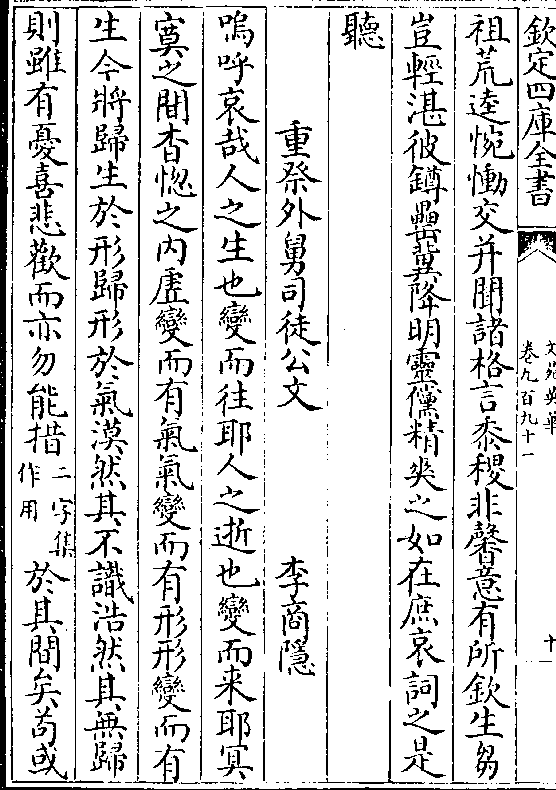 欽定四庫全書
文苑英華
卷九百九十一
十一
祖荒逵惋慟交并聞諸格言黍稷非馨意有所欽生芻
豈輕湛彼罇罍冀降明靈儻精爽之如在庶哀詞之是
聽
重祭外舅司徒公文 李商隱
嗚呼哀哉人之生也變而往耶人之逝也變而来耶冥
寞之間杳惚之内虛變而有氣氣變而有形形變而有
生今將歸生於形歸形於氣漠然其不識浩然其無歸
則雖有憂喜悲歡而亦勿能措二字集作用於其間矣苟或